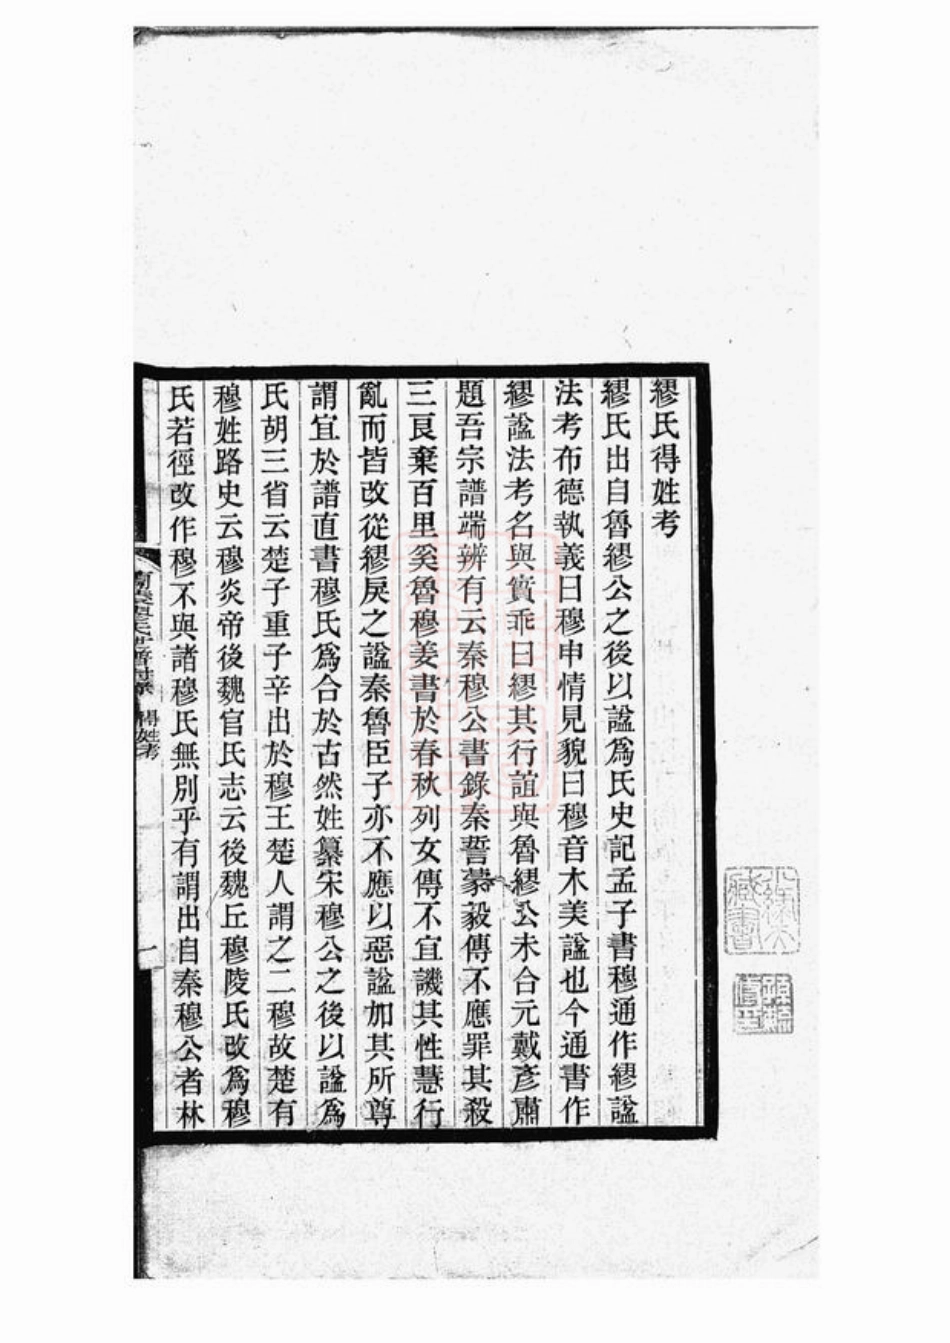 繆氏得姓考
繆氏出自魯繆公之後以諡爲氏史記孟子書穆通作繆諡
法考布德執義曰穆申情見貌曰穆音木美諡也今通書作
繆諡法考名與實乖曰繆其行誼與魯繆公未合元戴彥肅
題吾宗譜端辨有云秦穆公書錄秦誓蒙毅傳不應罪其殺
三良棄百里奚魯穆姜書於春秋列女傳不宜譏其性慧行
亂而皆改從繆戾之諡秦魯臣子亦不應以惡諡加其所尊
謂宜於譜直書穆氏爲合於古然姓纂宋穆公之後以諡爲
氏胡三省云楚子重子辛出於穆王楚人謂之二穆故楚有
穆姓路史云穆炎帝後魏官氏志云後魏丘穆陵氏改爲穆
氏若徑改作穆不與諸穆氏無別乎有謂出自秦穆公者林
得姓考
一